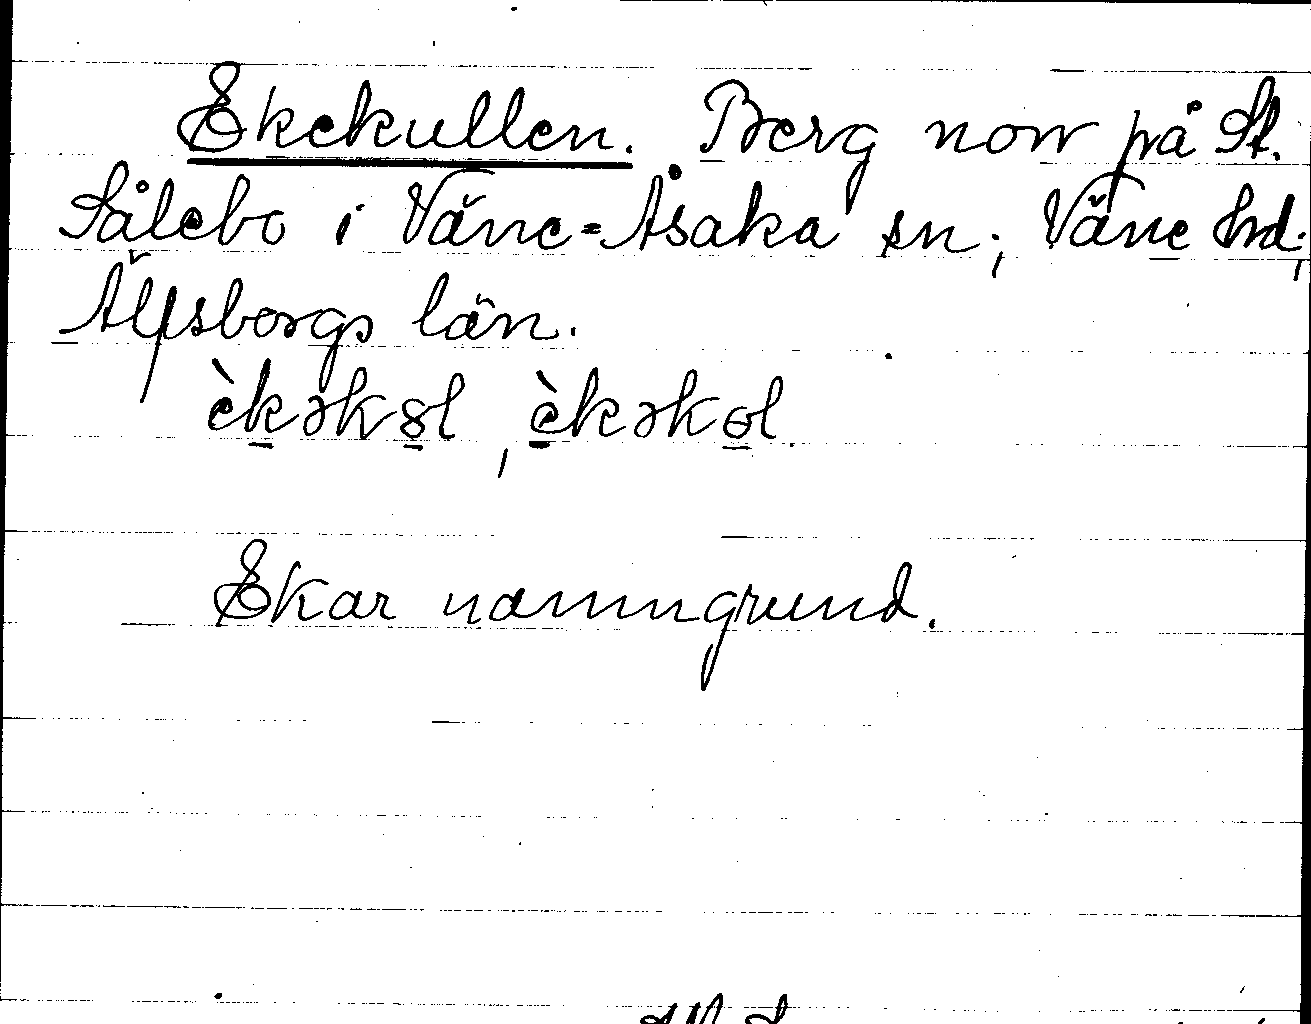 Ekekullen. Berg norr på St.
Sålebo i Väne-Åsaka sn, Väne hd,
Älfsborgs län.
èkəkɵl, èkəkɵl.
Ekar namngrund.